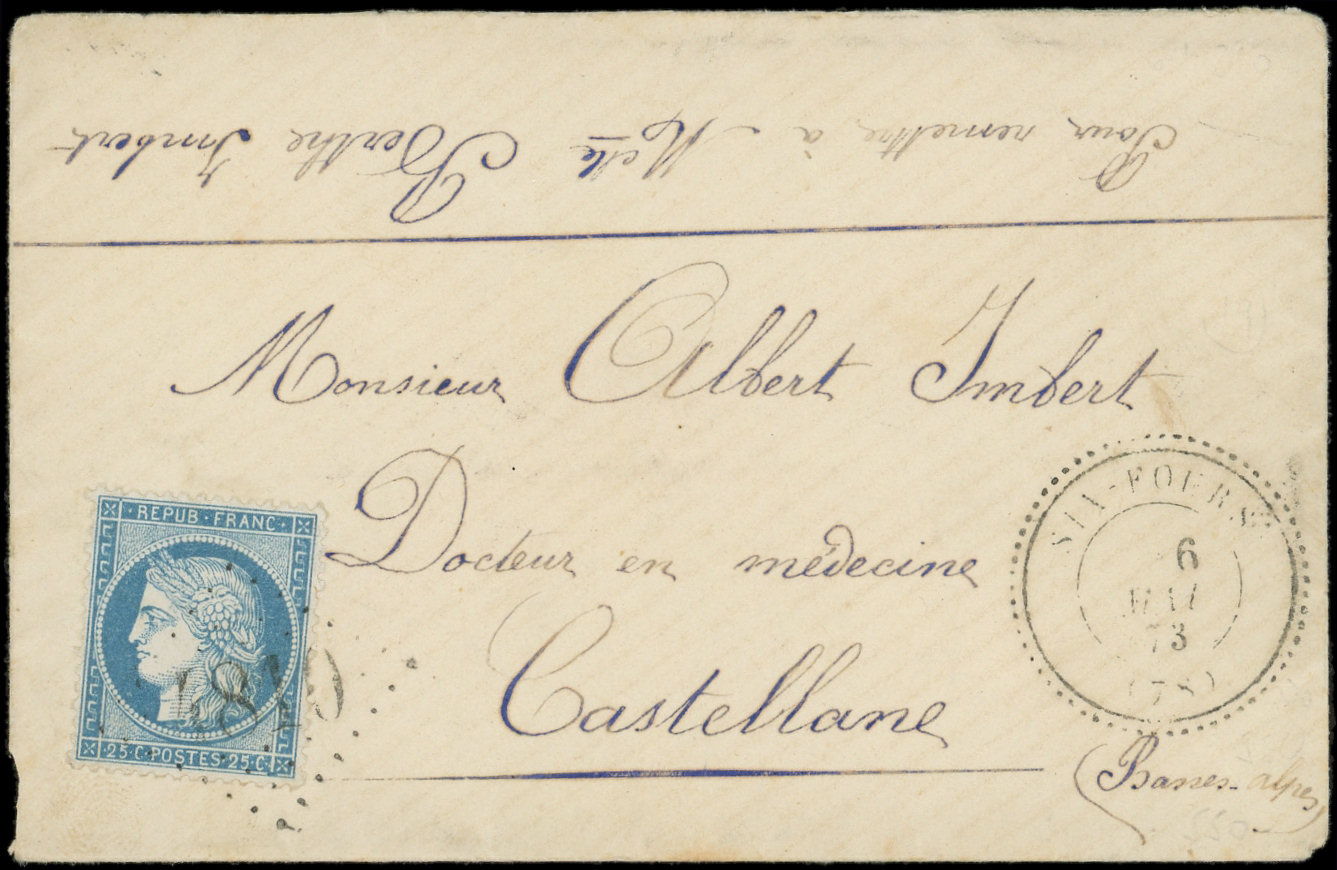 Pour remettre à Melle Berthe Imbert
Monsieur Albert Imbert
Docteur en médecine
Castellane
(Basses-alpes)
REPUB·FRANC·
25·C·POSTES·25·C·
SIX-FOURS
6
MAI
73
(78)